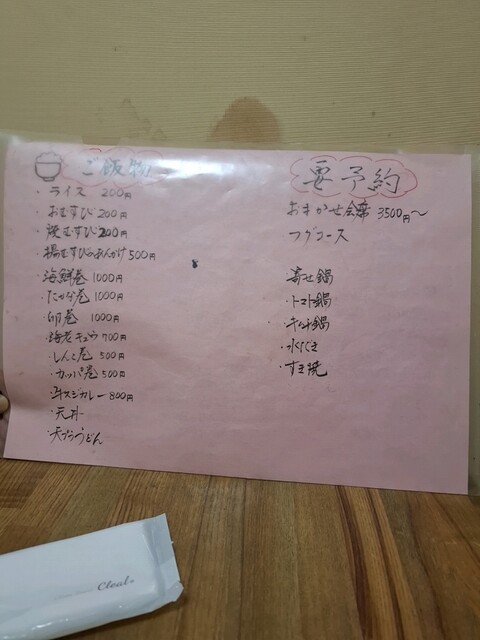 ご飯物
・ライス 200円
・おむすび 200円
・焼むすび 200円
・揚むすびのあんかけ 500円
・海鮮巻 1000円
・たかな巻 1000円
・卵巻 1000円
・海老キュウ 700円
・しんこ巻 500円
・カッパ巻 500円
・牛スジカレー 800円
・天丼
・天プラうどん
要予約
おまかせ会席 3500円〜
フグコース
・寄せ鍋
・トマト鍋
・キムチ鍋
・水たき
・すき焼
Cleal